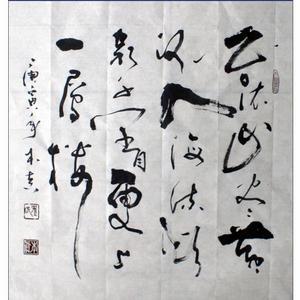 白日依山尽黄
河入海流欲
穷千里目更上
一層楼
庚寅年